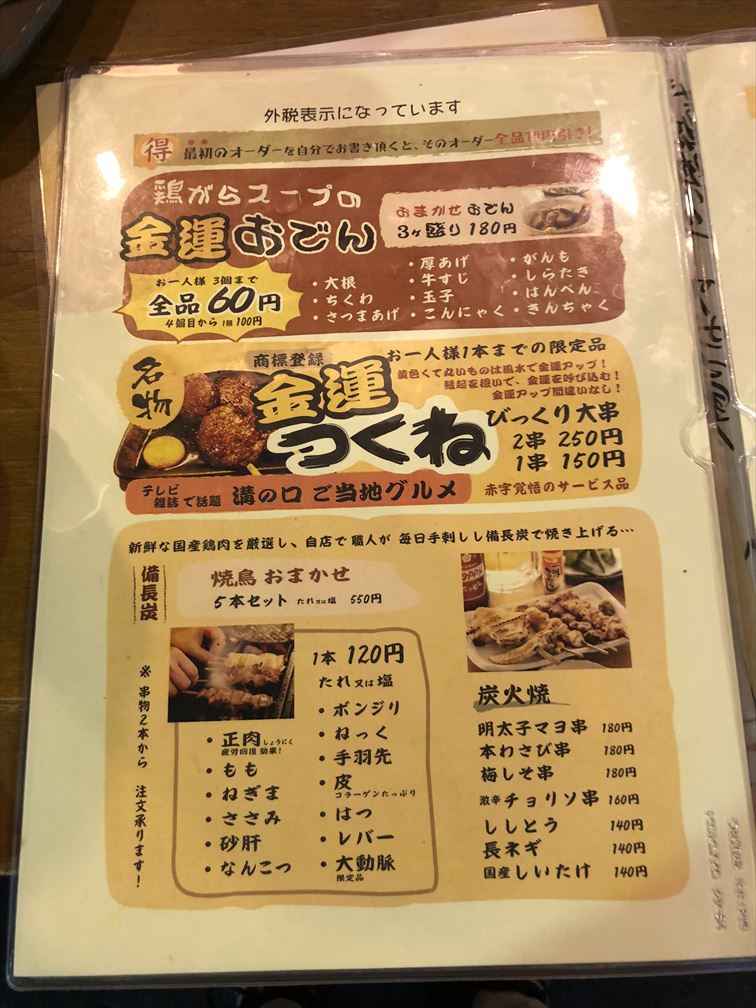 外税表示になっています
得 最初のオーダーを自分でお書き頂くと、そのオーダー全品10円引き!
鶏がらスープの
金運おでん
おまかせおでん
3ヶ盛り 180円
お一人様 3個まで
全品60円
4個目から 1個 100円
・大根
・ちくわ
・さつまあげ
・厚あげ
・牛すじ
・玉子
・こんにゃく
・がんも
・しらたき
・はんぺん
・きんちゃく
名物
商標登録
金運
つくね
お一人様1本までの限定品
黄色くて丸いものは風水で金運アップ!
験起を担いで、金運を呼び込む!
金運アップ間違いなし!
びっくり大串
2串 250円
1串 150円
テレビ
雑誌で話題 溝の口 ご当地グルメ
赤字覚悟のサービス品
新鮮な国産鶏肉を厳選し、自店で職人が 毎日手刺しし備長炭で焼き上げる…
備長炭
焼鳥 おまかせ
5本セット たれ又は塩 550円
※ 串物2本から 注文承ります!
1本 120円
たれ又は塩
・正肉 しょうにく
疲労回復 効果!
・もも
・ねぎま
・ささみ
・砂肝
・なんこつ
・ボンジリ
・ねっく
・手羽先
・皮
コラーゲンたっぷり
・はつ
・レバー
・大動脈
限定品
炭火焼
明太子マヨ串 180円
本わさび串 180円
梅しそ串 180円
激辛 チョリソ串 160円
ししとう 140円
長ネギ 140円
国産 しいたけ 140円